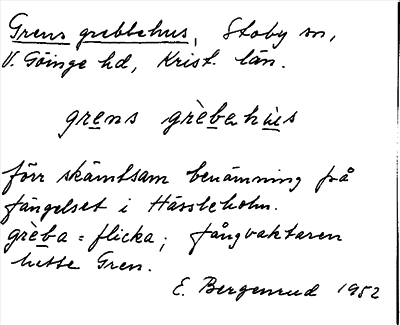 Grens grebbehus, Stoby sn,
V. Göinge hd, Krist. län.
grens grèbahùs
förr skämtsam benämning på
fängelset i Hässleholm.
grèba = flicka; fångvaktaren
hette Gren.
E. Bergenrud 1952